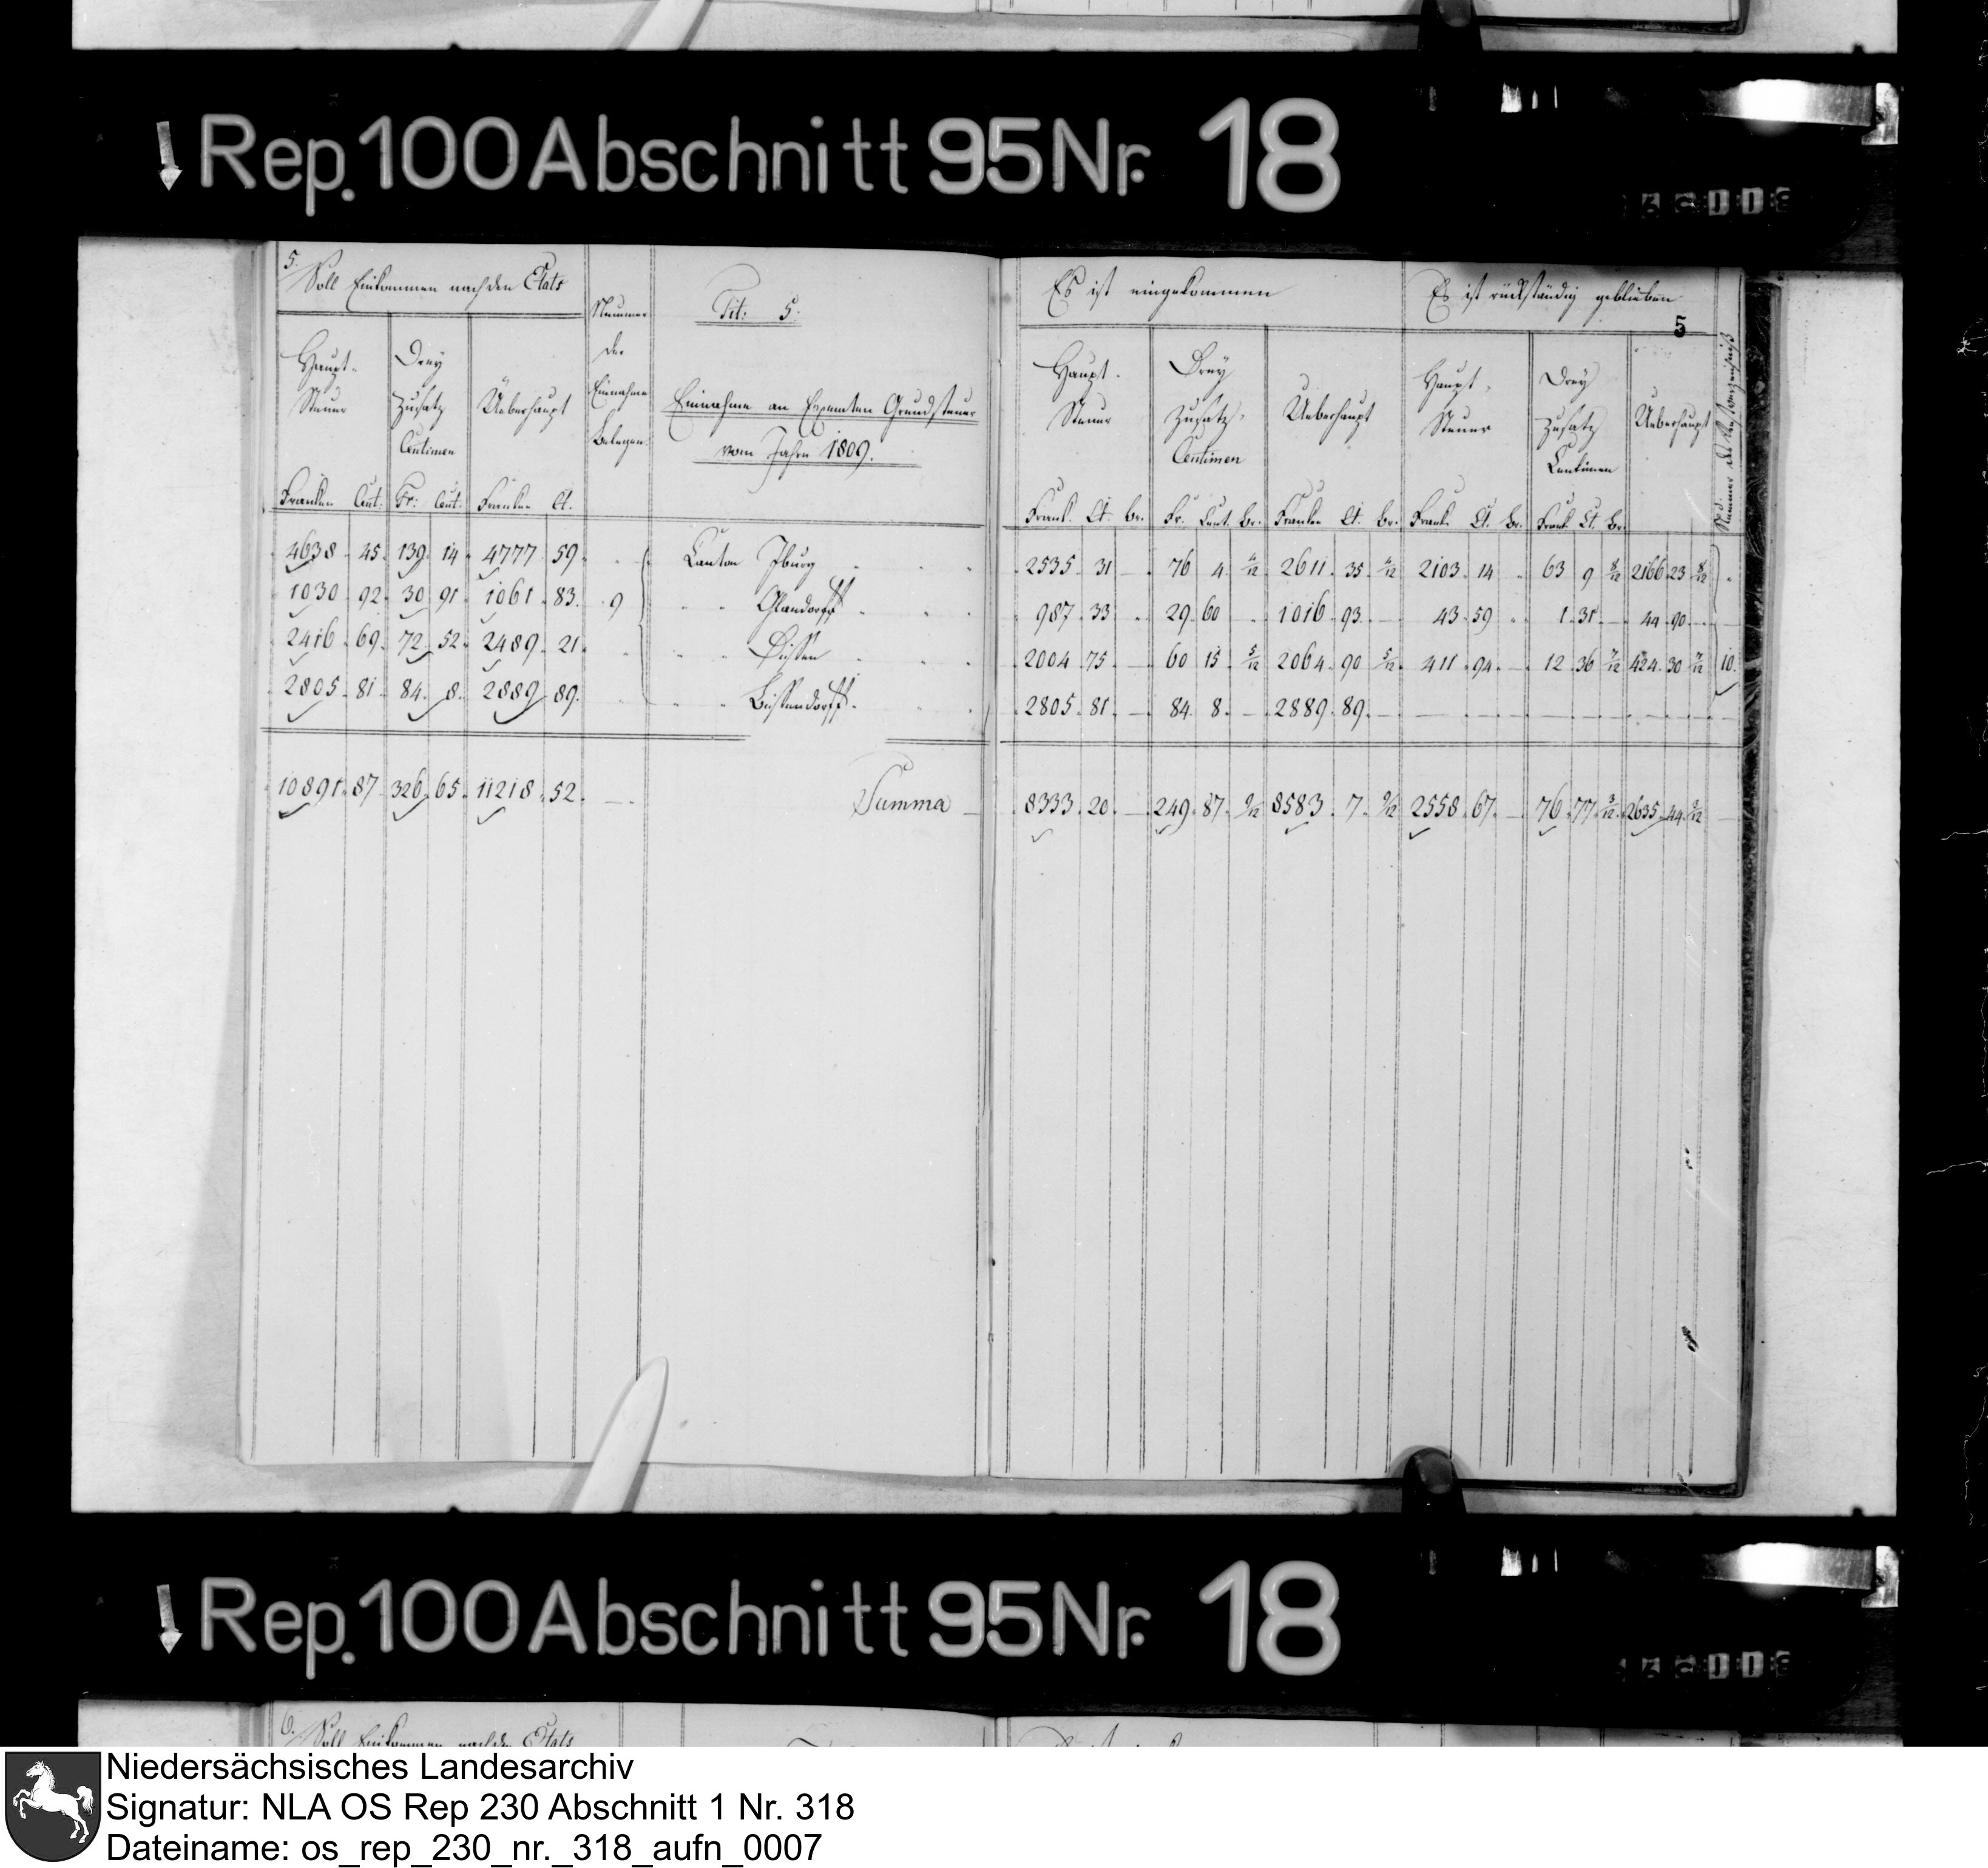 Rep. 100 Abschnitt 95 Nr. 18
5.
Soll Einkommen nach den Etats
Nummer der Einnahme Belegen
Tit: 5.
Einnahme an Exemten Grundsteuer
vom Jahre 1809.
Es ist eingekommen
Es ist rückständig geblieben
5
Haupt- Steuer
Drey Zusatz Centimen
Ueberhaupt
Haupt- Steuer
Drey Zusatz- Centimen
Ueberhaupt
Haupt- Steuer
Drey Zusatz Centimen
Ueberhaupt
Franken Cent. Fr: Cent. Franken Ct.
Frank. Ct. br. Fr. Cent. Br. Franken Ct. br. Frank. Ct. Br. Frank Ct. Br.
4638 45 139 14 4777 59 Canton Iburg 2535 31 — 76 4 4/12 2611 35 4/12 2103 14 63 9 8/12 2166 23 8/12
1030 92 30 91 1061 83 9 " " Glandorff 987 33 29 60 1016 93 43 59 1 31 — 44 90 —
2416 69 72 52 2489 21 " " Dissen 2004 75 — 60 15 5/12 2064 90 5/12 411 94 — 12 36 7/12 424 30 7/12 10.
2805 81 84 8 2889 89 " " Bissendorff 2805 81 — 84 8 — 2889 89 — — — — — — — — —
10891 87 326 65 11218 52 — Summa — 8333 20 — 249 87 9/12 8583 7 9/12 2558 67 — 76 77 3/12 2635 44 3/12
Rep. 100 Abschnitt 95 Nr. 18
6.
Soll Einkommen nach den Etats
Niedersächsisches Landesarchiv
Signatur: NLA OS Rep 230 Abschnitt 1 Nr. 318
Dateiname: os_rep_230_nr._318_aufn_0007